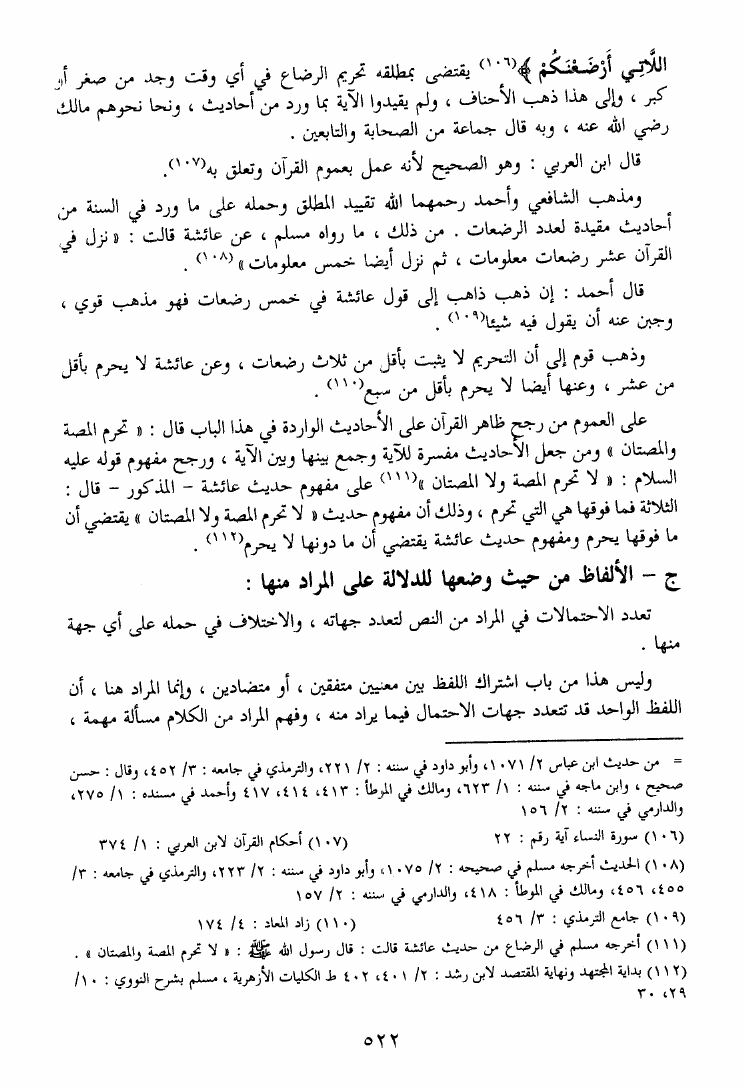 اللَّاتِي أَرْضَعْنَكُمْ ﴾(١٠٦) يقتضى بمطلقه تحريم الرضاع في أي وقت وجد من صغر أو
كبر ، وإلى هذا ذهب الأحناف ، ولم يقيدوا الآية بما ورد من أحاديث ، ونحا نحوهم مالك
رضي الله عنه ، وبه قال جماعة من الصحابة والتابعين .
قال ابن العربي : وهو الصحيح لأنه عمل بعموم القرآن وتعلق به(١٠٧).
ومذهب الشافعي وأحمد رحمهما الله تقييد المطلق وحمله على ما ورد في السنة من
أحاديث مقيدة لعدد الرضعات . من ذلك ، ما رواه مسلم ، عن عائشة قالت : « نزل في
القرآن عشر رضعات معلومات ، ثم نزل أيضا خمس معلومات »(١٠٨) .
قال أحمد : إن ذهب ذاهب إلى قول عائشة في خمس رضعات فهو مذهب قوي ،
وجبن عنه أن يقول فيه شيئا(١٠٩) .
وذهب قوم إلى أن التحريم لا يثبت بأقل من ثلاث رضعات ، وعن عائشة لا يحرم بأقل
من عشر ، وعنها أيضا لا يحرم بأقل من سبع(١١٠) .
على العموم من رجح ظاهر القرآن على الأحاديث الواردة في هذا الباب قال : « تحرم المصة
والمصتان » ومن جعل الأحاديث مفسرة للآية وجمع بينها وبين الآية ، ورجح مفهوم قوله عليه
السلام : « لا تحرم المصة ولا المصتان »(١١١) على مفهوم حديث عائشة – المذكور – قال :
الثلاثة فما فوقها هي التي تحرم ، وذلك أن مفهوم حديث « لا تحرم المصة ولا المصتان » يقتضي أن
ما فوقها يحرم ومفهوم حديث عائشة يقتضي أن ما دونها لا يحرم(١١٢) .
ج – الألفاظ من حيث وضعها للدلالة على المراد منها :
تعدد الاحتمالات في المراد من النص لتعدد جهاته ، والاختلاف في حمله على أي جهة
منها .
وليس هذا من باب اشتراك اللفظ بين معنيين متفقين ، أو متضادين ، وإنما المراد هنا ، أن
اللفظ الواحد قد تتعدد جهات الاحتمال فيما يراد منه ، وفهم المراد من الكلام مسألة مهمة ،
= من حديث ابن عباس ٢/ ١٠٧١، وأبو داود في سننه : ٢/ ٢٢١، والترمذي في جامعه : ٣/ ٤٥٢، وقال : حسن
صحيح ، وابن ماجه في سننه : ١/ ٦٢٣، ومالك في الموطأ : ٤١٣، ٤١٤، ٤١٧ وأحمد في مسنده : ١/ ٢٧٥،
والدارمي في سننه : ٢/ ١٥٦
(١٠٦) سورة النساء آية رقم : ٢٢ (١٠٧) أحكام القرآن لابن العربي : ١/ ٣٧٤
(١٠٨) الحديث أخرجه مسلم في صحيحه : ٢/ ١٠٧٥، وأبو داود في سننه : ٢/ ٢٢٣، والترمذي في جامعه : ٣/
٤٥٥، ٤٥٦، ومالك في الموطأ : ٤١٨، والدارمي في سننه : ٢/ ١٥٧
(١٠٩) جامع الترمذي : ٣/ ٤٥٦ (١١٠) زاد المعاد : ٤/ ١٧٤
(١١١) أخرجه مسلم في الرضاع من حديث عائشة قالت : قال رسول الله ﷺ : « لا تحرم المصة والمصتان » .
(١١٢) بداية المجتهد ونهاية المقتصد لابن رشد : ٢/ ٤٠١، ٤٠٢ ط الكليات الأزهرية ، مسلم بشرح النووي : ١٠/
٢٩، ٣٠
٥٢٢